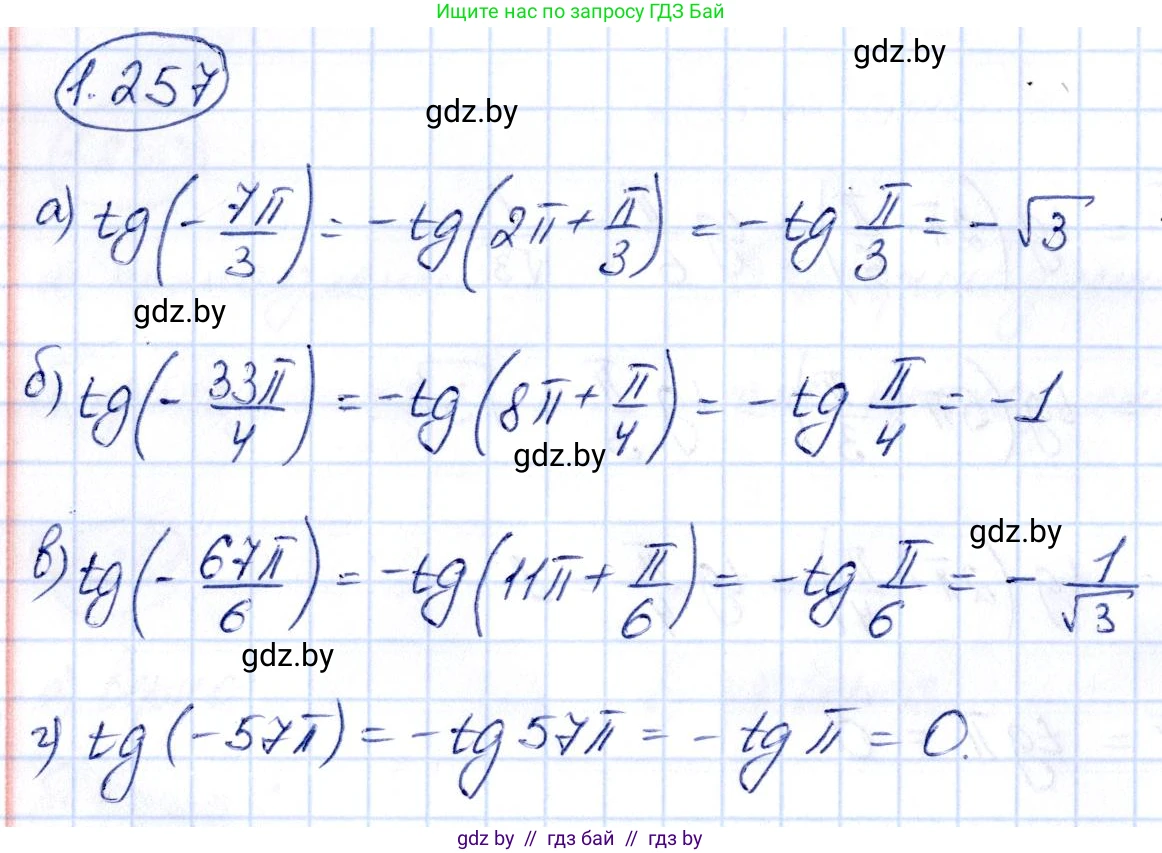 Ищите нас по запросу ГДЗ Бай
gdz.by
1.257
gdz.by
а) tg(-7π/3) = -tg(2π + π/3) = -tg π/3 = -√3
gdz.by
б) tg(-33π/4) = -tg(8π + π/4) = -tg π/4 = -1
gdz.by
gdz.by
в) tg(-67π/6) = -tg(11π + π/6) = -tg π/6 = -1/√3
gdz.by
г) tg(-57π) = -tg 57π = -tg π = 0.
gdz by // гдз бай // гдз by